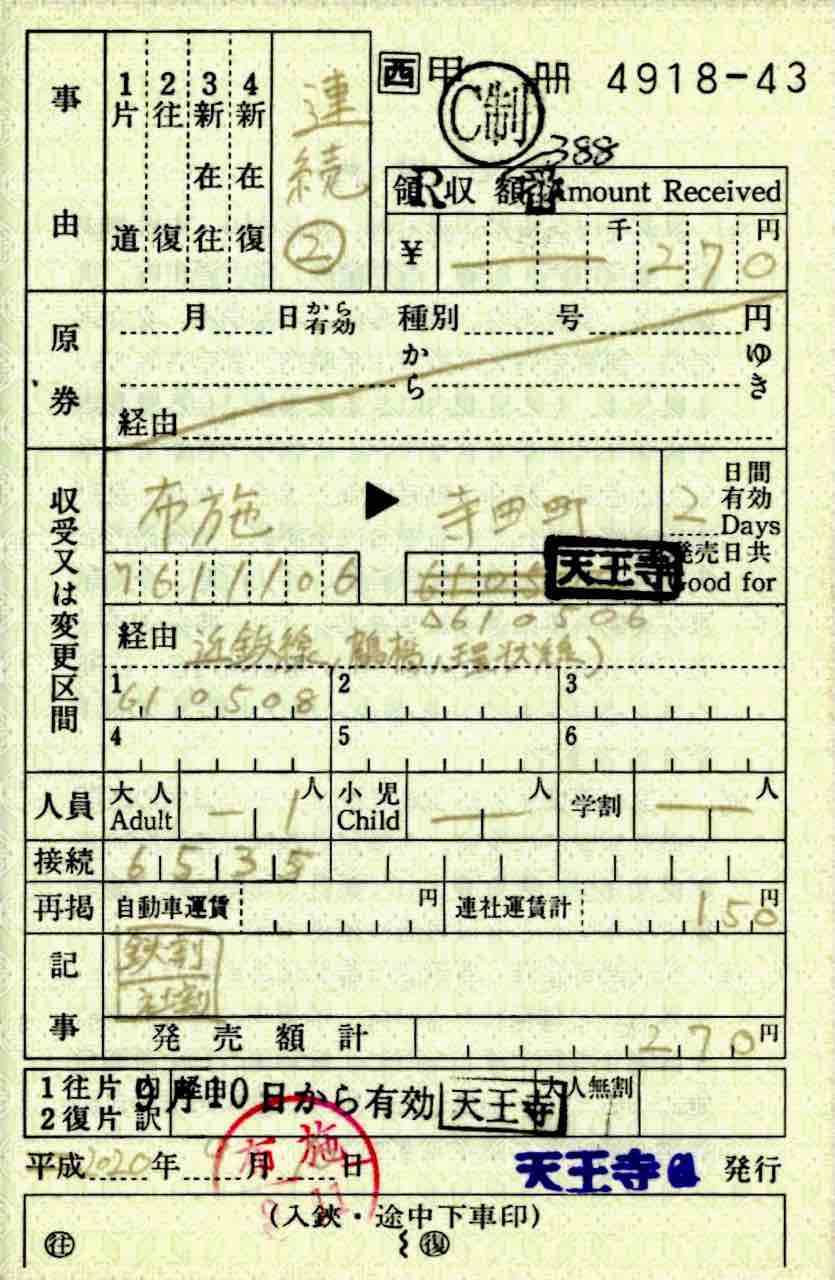 西 甲 册 4918-43
C制
388
事由
1片道
2往復
3新在往
4新在復
連続②
領収額 Amount Received
¥ 千 270 円
原券
月 日から有効 種別 号 円
から ゆき
経由
収受又は変更区間
布施 ▶ 寺田町
2 日間有効 Days
発売日共 Good for
7611106 6105 天王寺
610506
経由 近鉄線,鶴橋,環状線)
1 610508 2 3
4 5 6
人員 大人 Adult 1人 小児 Child 人 学割 人
接続 6535
再掲 自動車運賃 円 連社運賃計 150円
記事
鉄割
社割
発売額計 270円
1往片 内訳 経由 大人無割
2復片
9月10日から有効 天王寺
平成 2020年 月 日 天王寺 発行
布施
(入鋏・途中下車印)
往 復